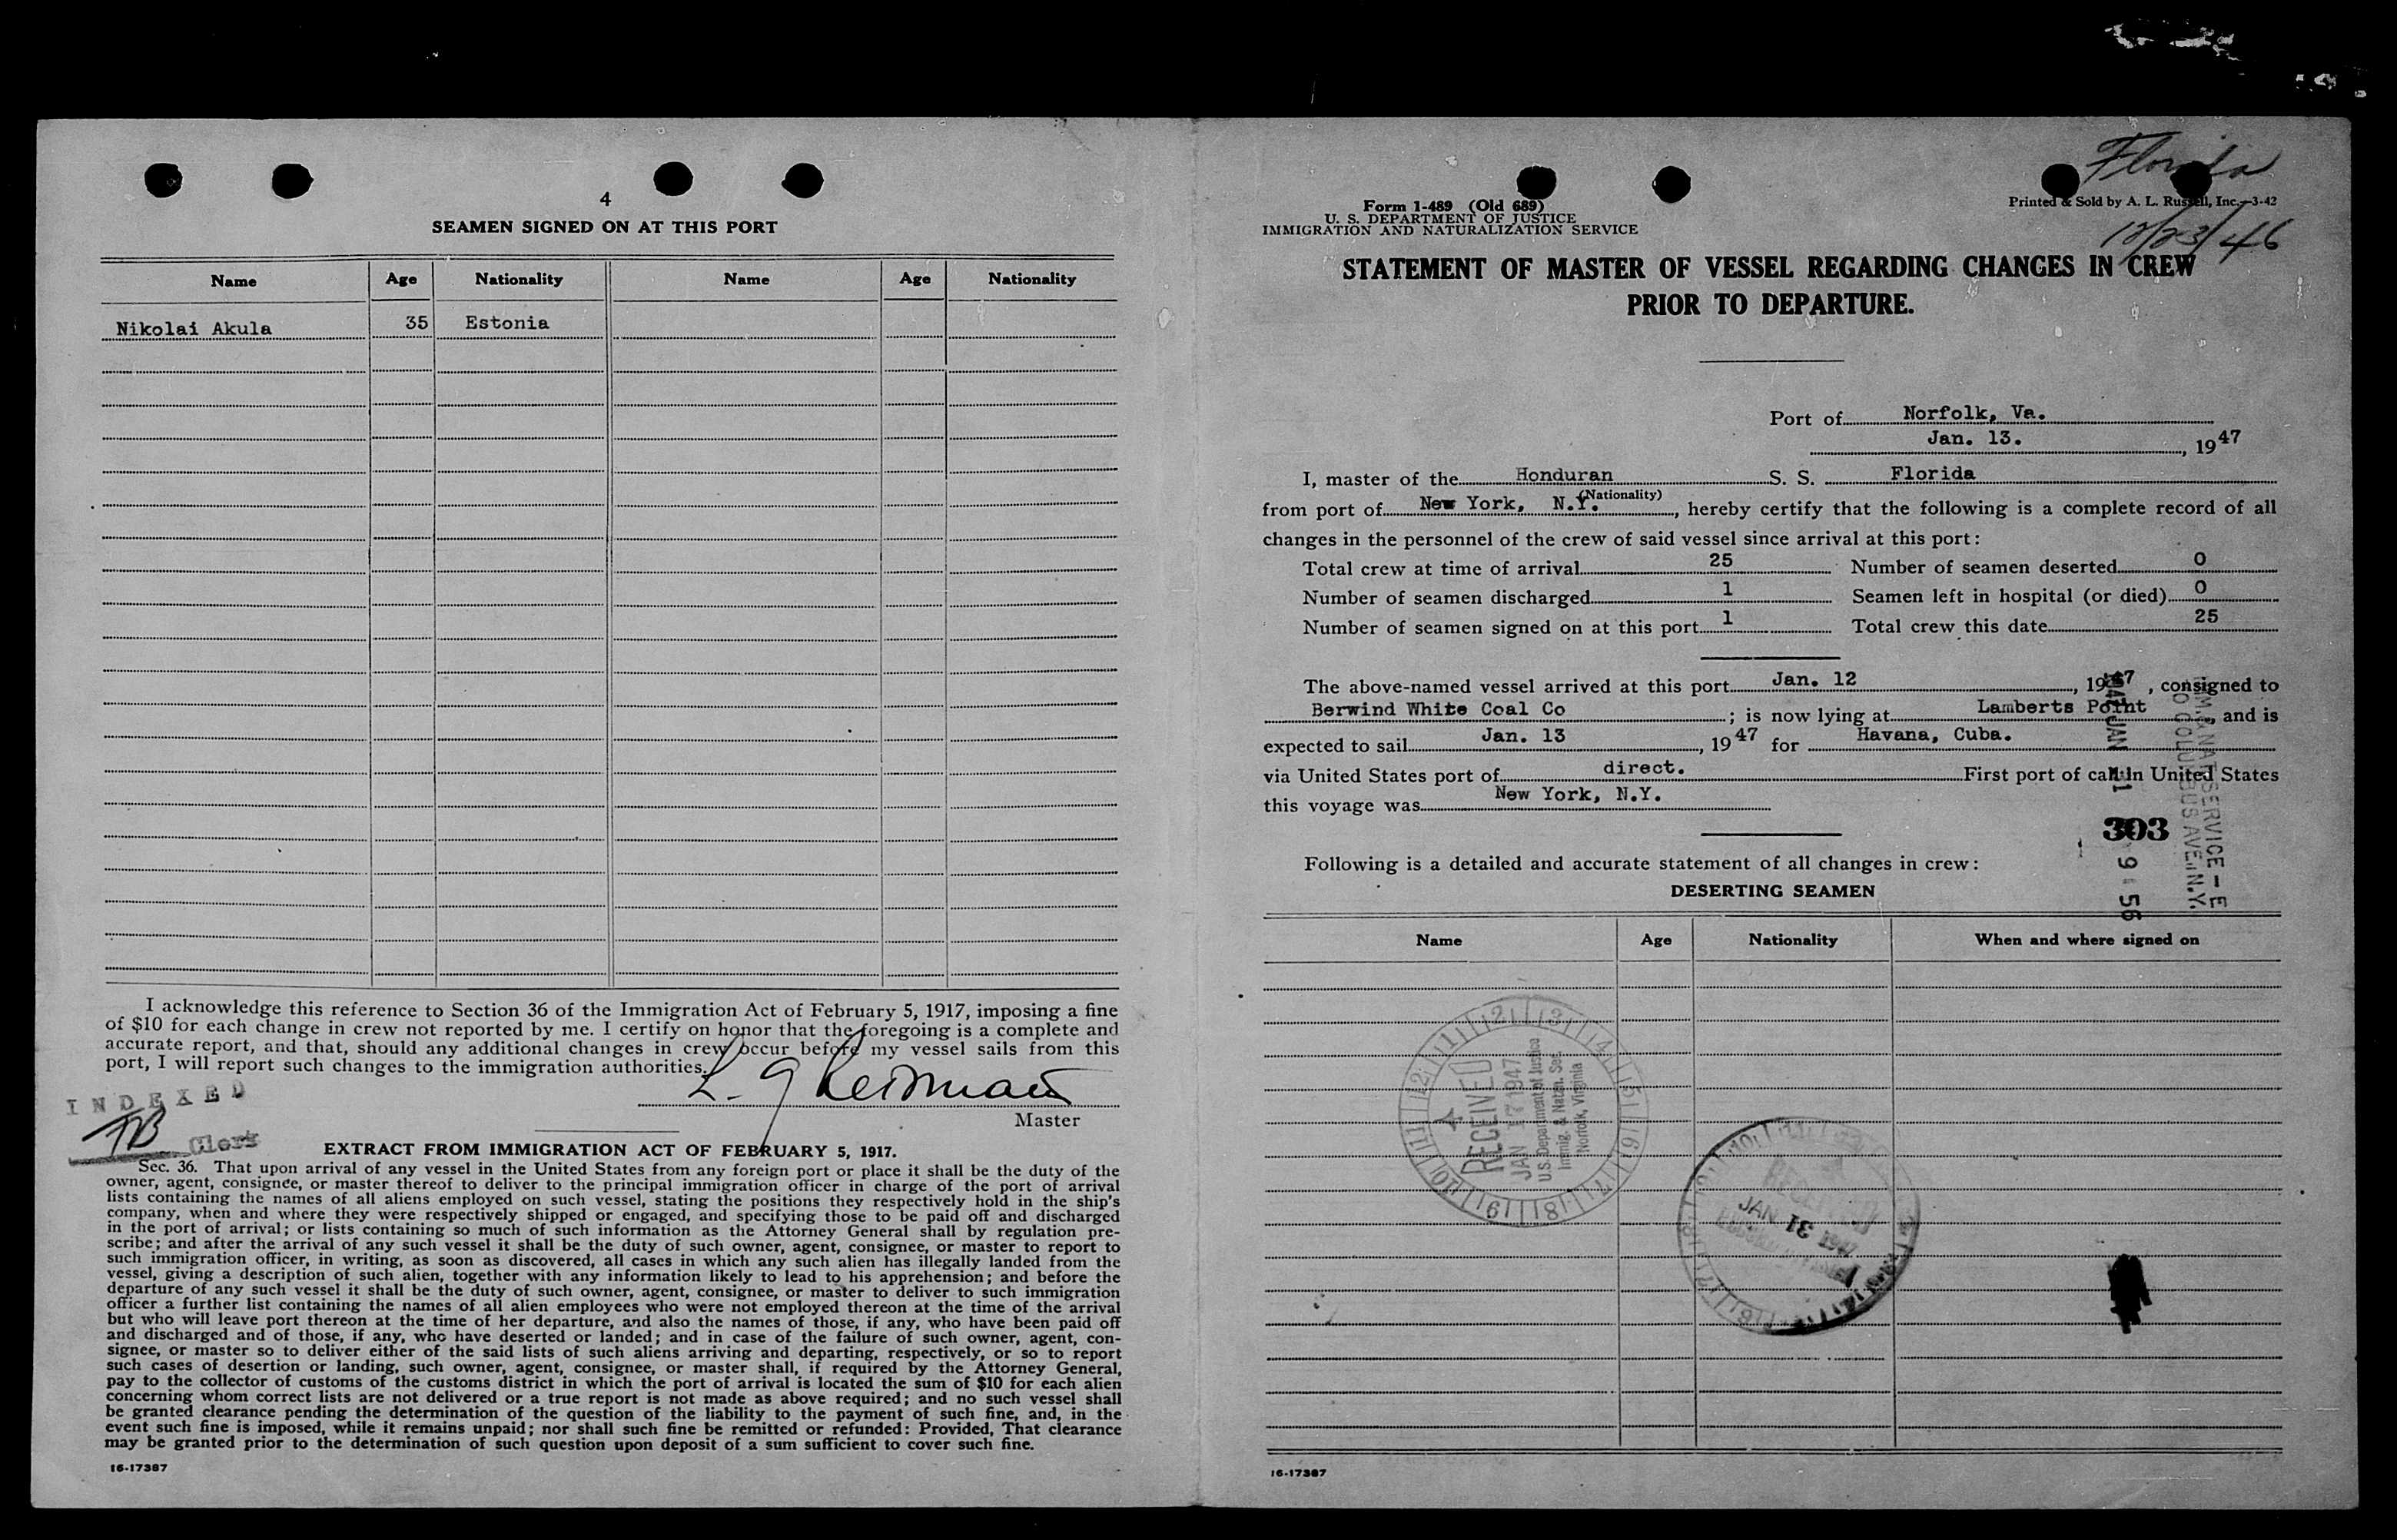 4
SEAMEN SIGNED ON AT THIS PORT
Name Age Nationality Name Age Nationality
Nikolai Akula 35 Estonia
I acknowledge this reference to Section 36 of the Immigration Act of February 5, 1917, imposing a fine
of $10 for each change in crew not reported by me. I certify on honor that the foregoing is a complete and
accurate report, and that, should any additional changes in crew occur before my vessel sails from this
port, I will report such changes to the immigration authorities.
Master
INDEXED
Clerk
EXTRACT FROM IMMIGRATION ACT OF FEBRUARY 5, 1917.
Sec. 36. That upon arrival of any vessel in the United States from any foreign port or place it shall be the duty of the
owner, agent, consignee, or master thereof to deliver to the principal immigration officer in charge of the port of arrival
lists containing the names of all aliens employed on such vessel, stating the positions they respectively hold in the ship's
company, when and where they were respectively shipped or engaged, and specifying those to be paid off and discharged
in the port of arrival; or lists containing so much of such information as the Attorney General shall by regulation pre-
scribe; and after the arrival of any such vessel it shall be the duty of such owner, agent, consignee, or master to report to
such immigration officer, in writing, as soon as discovered, all cases in which any such alien has illegally landed from the
vessel, giving a description of such alien, together with any information likely to lead to his apprehension; and before the
departure of any such vessel it shall be the duty of such owner, agent, consignee, or master to deliver to such immigration
officer a further list containing the names of all alien employees who were not employed thereon at the time of the arrival
but who will leave port thereon at the time of her departure, and also the names of those, if any, who have been paid off
and discharged and of those, if any, who have deserted or landed; and in case of the failure of such owner, agent, con-
signee, or master so to deliver either of the said lists of such aliens arriving and departing, respectively, or so to report
such cases of desertion or landing, such owner, agent, consignee, or master shall, if required by the Attorney General,
pay to the collector of customs of the customs district in which the port of arrival is located the sum of $10 for each alien
concerning whom correct lists are not delivered or a true report is not made as above required; and no such vessel shall
be granted clearance pending the determination of the question of the liability to the payment of such fine, and, in the
event such fine is imposed, while it remains unpaid; nor shall such fine be remitted or refunded: Provided, That clearance
may be granted prior to the determination of such question upon deposit of a sum sufficient to cover such fine.
16-17387
Florida
Form 1-489 (Old 689)
U. S. DEPARTMENT OF JUSTICE
IMMIGRATION AND NATURALIZATION SERVICE
Printed & Sold by A. L. Russell, Inc.—3-42
12/23/46
STATEMENT OF MASTER OF VESSEL REGARDING CHANGES IN CREW
PRIOR TO DEPARTURE.
Port of Norfolk, Va.
Jan. 13. , 1947
I, master of the Honduran S. S. Florida
(Nationality)
from port of New York, N.Y. , hereby certify that the following is a complete record of all
changes in the personnel of the crew of said vessel since arrival at this port:
Total crew at time of arrival 25 Number of seamen deserted 0
Number of seamen discharged 1 Seamen left in hospital (or died) 0
Number of seamen signed on at this port 1 Total crew this date 25
The above-named vessel arrived at this port Jan. 12 , 1947 , consigned to
Berwind White Coal Co ; is now lying at Lamberts Point , and is
expected to sail Jan. 13 , 1947 for Havana, Cuba.
via United States port of direct. First port of call in United States
this voyage was New York, N.Y.
303
1947 JAN 21 9 56
IMM & NAT SERVICE - E
70 COLUMBUS AVE., N.Y.
Following is a detailed and accurate statement of all changes in crew:
DESERTING SEAMEN
Name Age Nationality When and where signed on
RECEIVED
JAN 17 1947
U.S. Department of Justice
Immig. & Natzn. Ser.
Norfolk, Virginia
RECEIVED
JAN 31 1947
16-17387